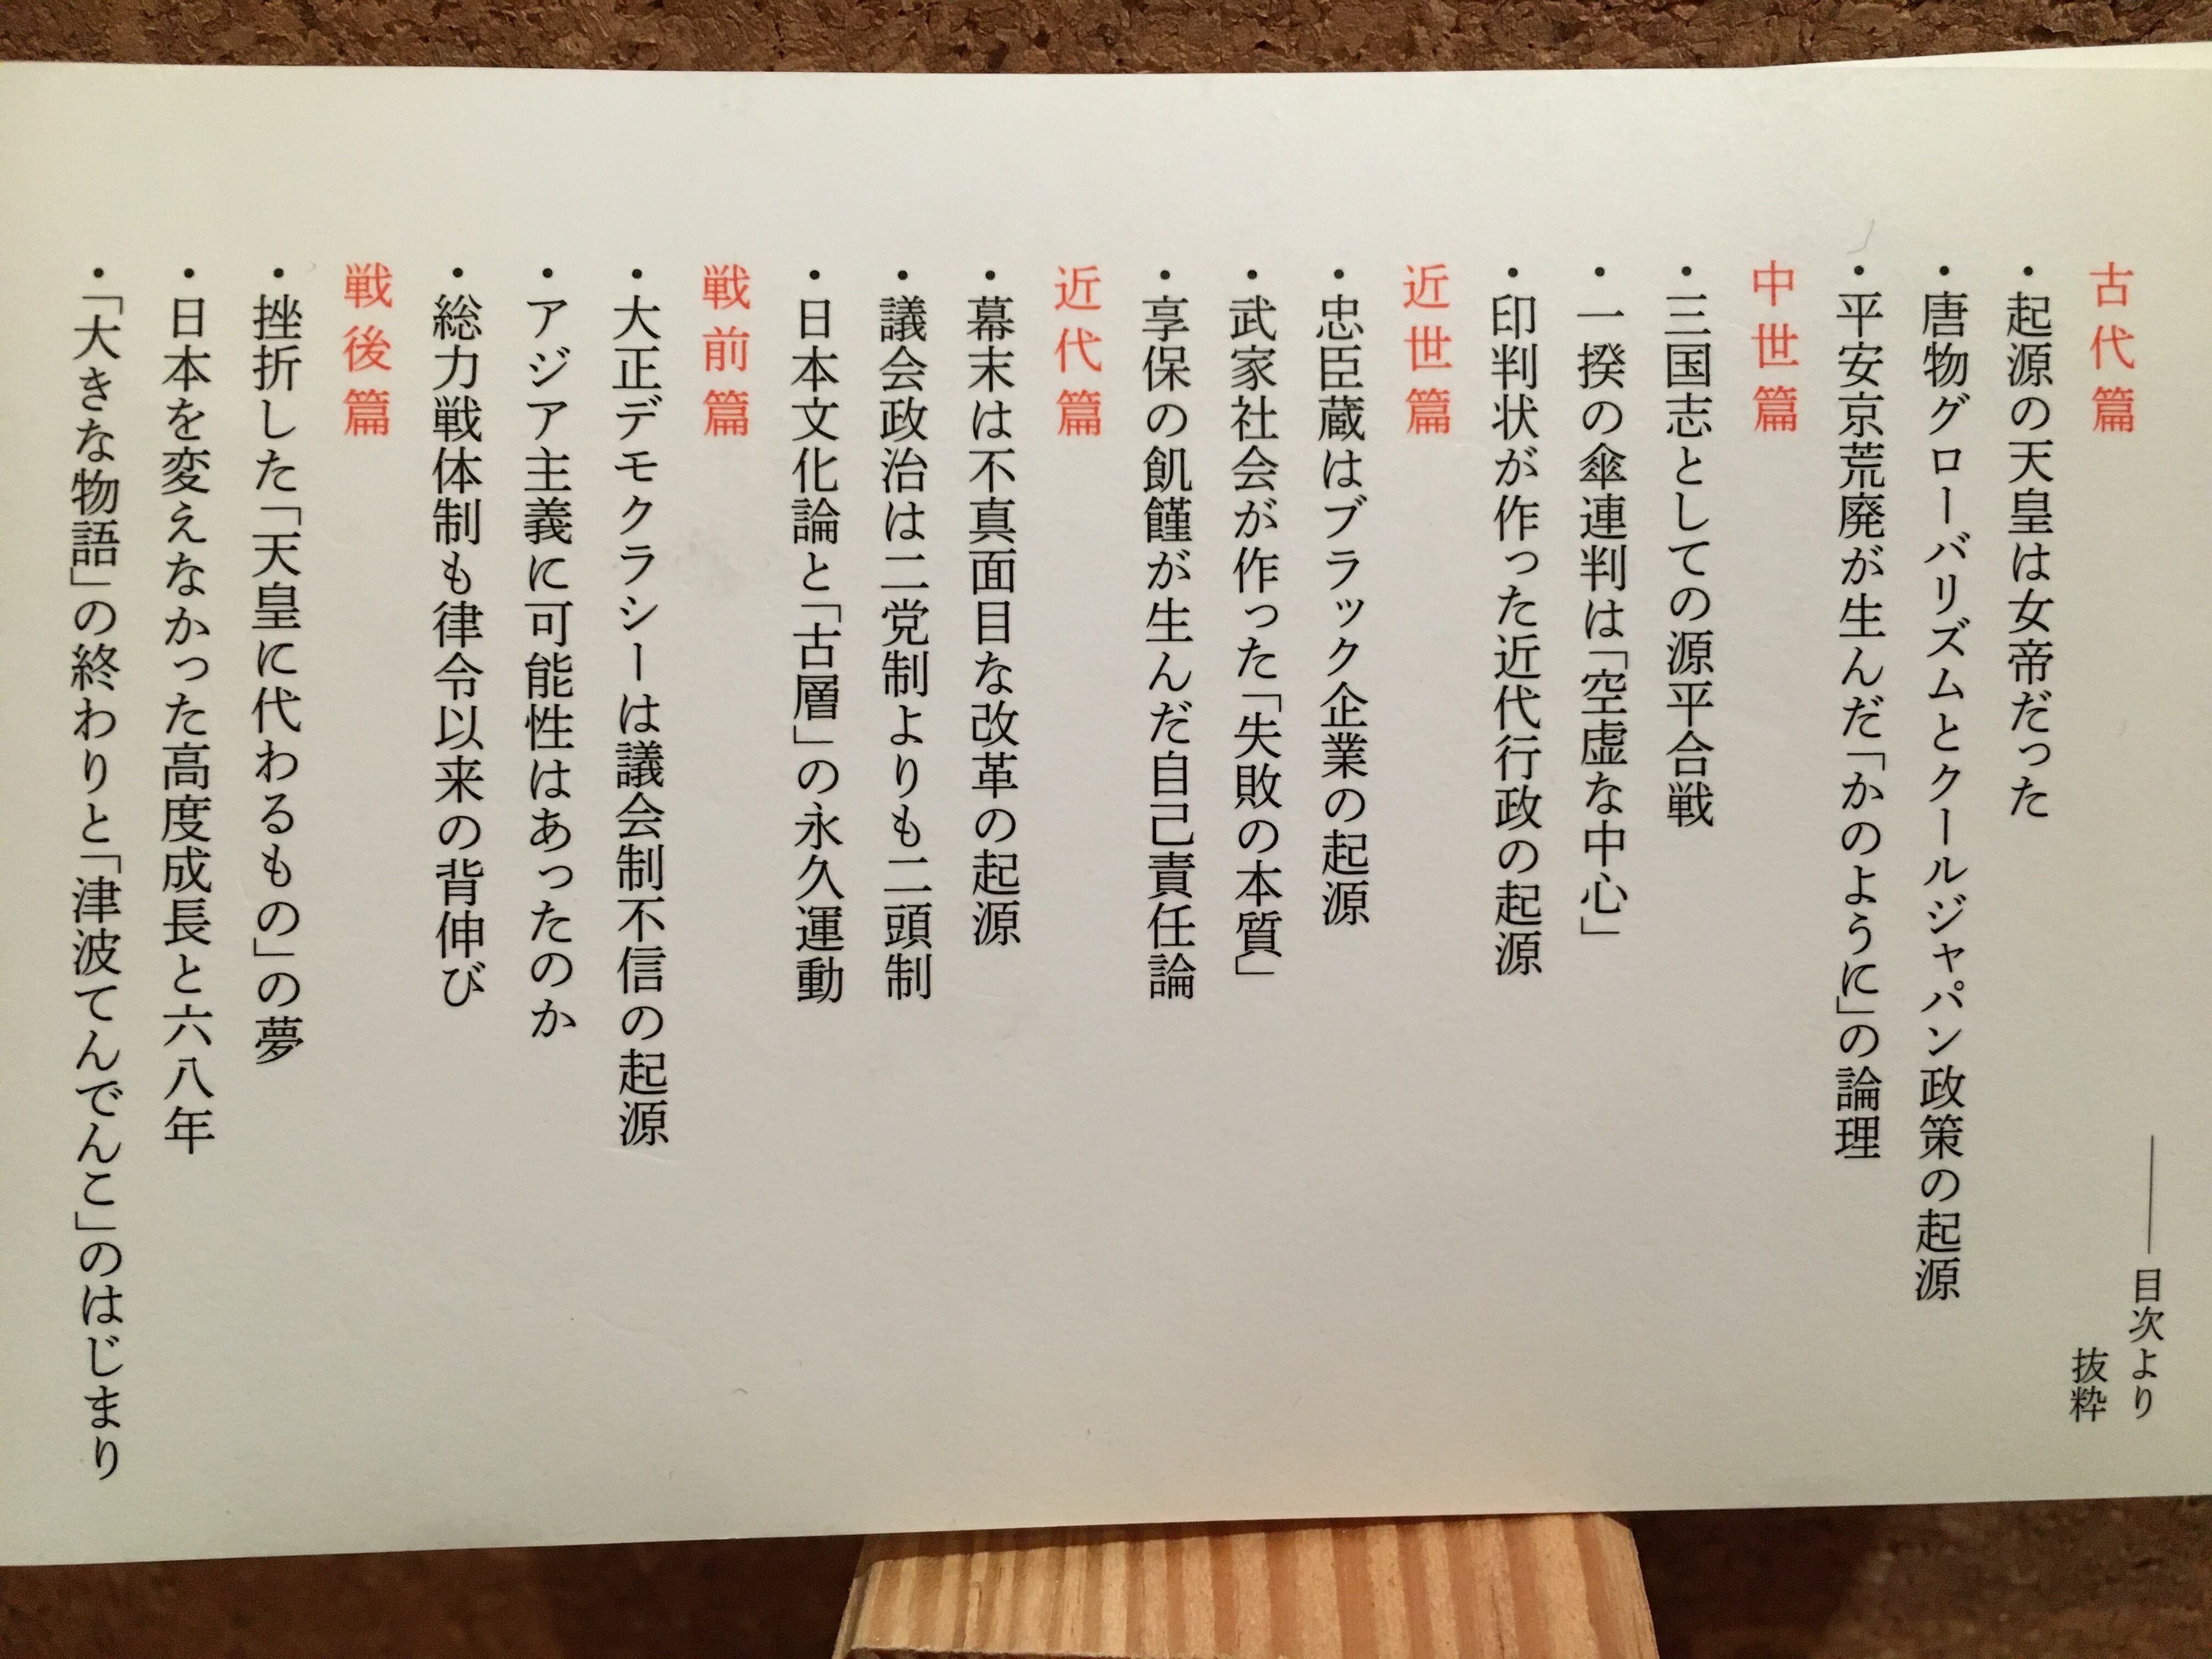 ――目次より
抜粋
古代篇
・起源の天皇は女帝だった
・唐物グローバリズムとクールジャパン政策の起源
・平安京荒廃が生んだ「かのように」の論理
中世篇
・三国志としての源平合戦
・一揆の傘連判は「空虚な中心」
・印判状が作った近代行政の起源
近世篇
・忠臣蔵はブラック企業の起源
・武家社会が作った「失敗の本質」
・享保の飢饉が生んだ自己責任論
近代篇
・幕末は不真面目な改革の起源
・議会政治は二党制よりも二頭制
・日本文化論と「古層」の永久運動
戦前篇
・大正デモクラシーは議会制不信の起源
・アジア主義に可能性はあったのか
・総力戦体制も律令以来の背伸び
戦後篇
・挫折した「天皇に代わるもの」の夢
・日本を変えなかった高度成長と六八年
・「大きな物語」の終わりと「津波てんでんこ」のはじまり